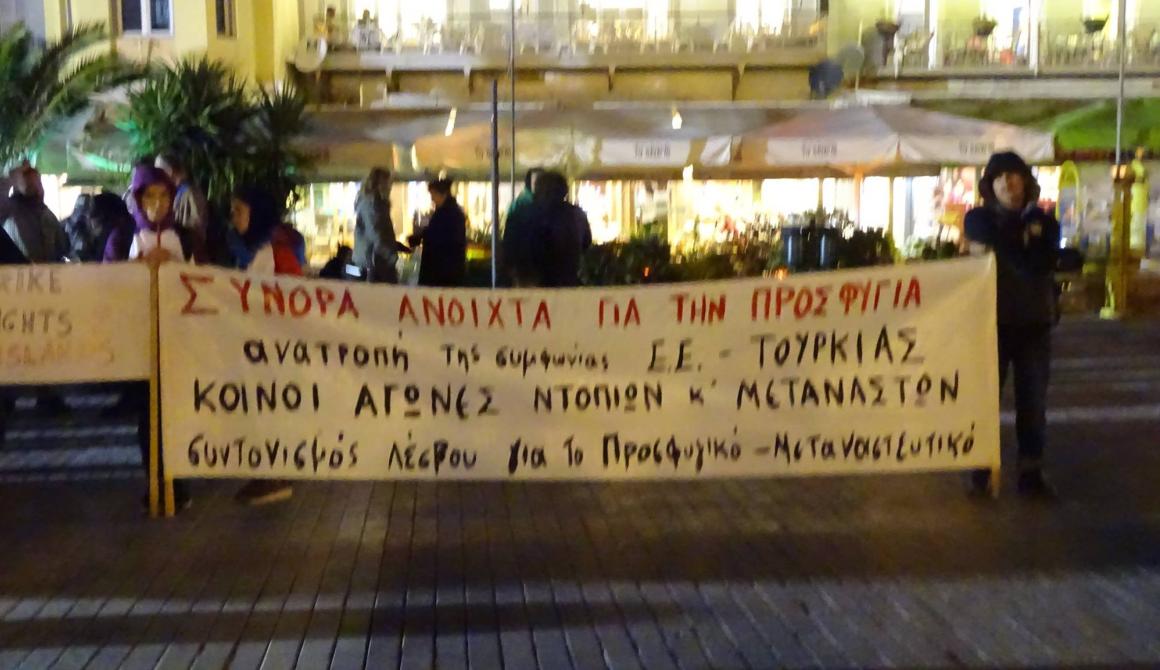 GHTS
ΣΥΝΟΡΑ ΑΝΟΙΧΤΑ ΓΙΑ ΤΗΝ ΠΡΟΣΦΥΓΙΑ
ανατροπή της συμφωνίας Ε.Ε. - ΤΟΥΡΚΙΑΣ
ΚΟΙΝΟΙ ΑΓΩΝΕΣ ΝΤΟΠΙΩΝ κ' ΜΕΤΑΝΑΣΤΩΝ
συντονισμός Λέσβου για το Προσφυγικό - Μεταναστευτικό